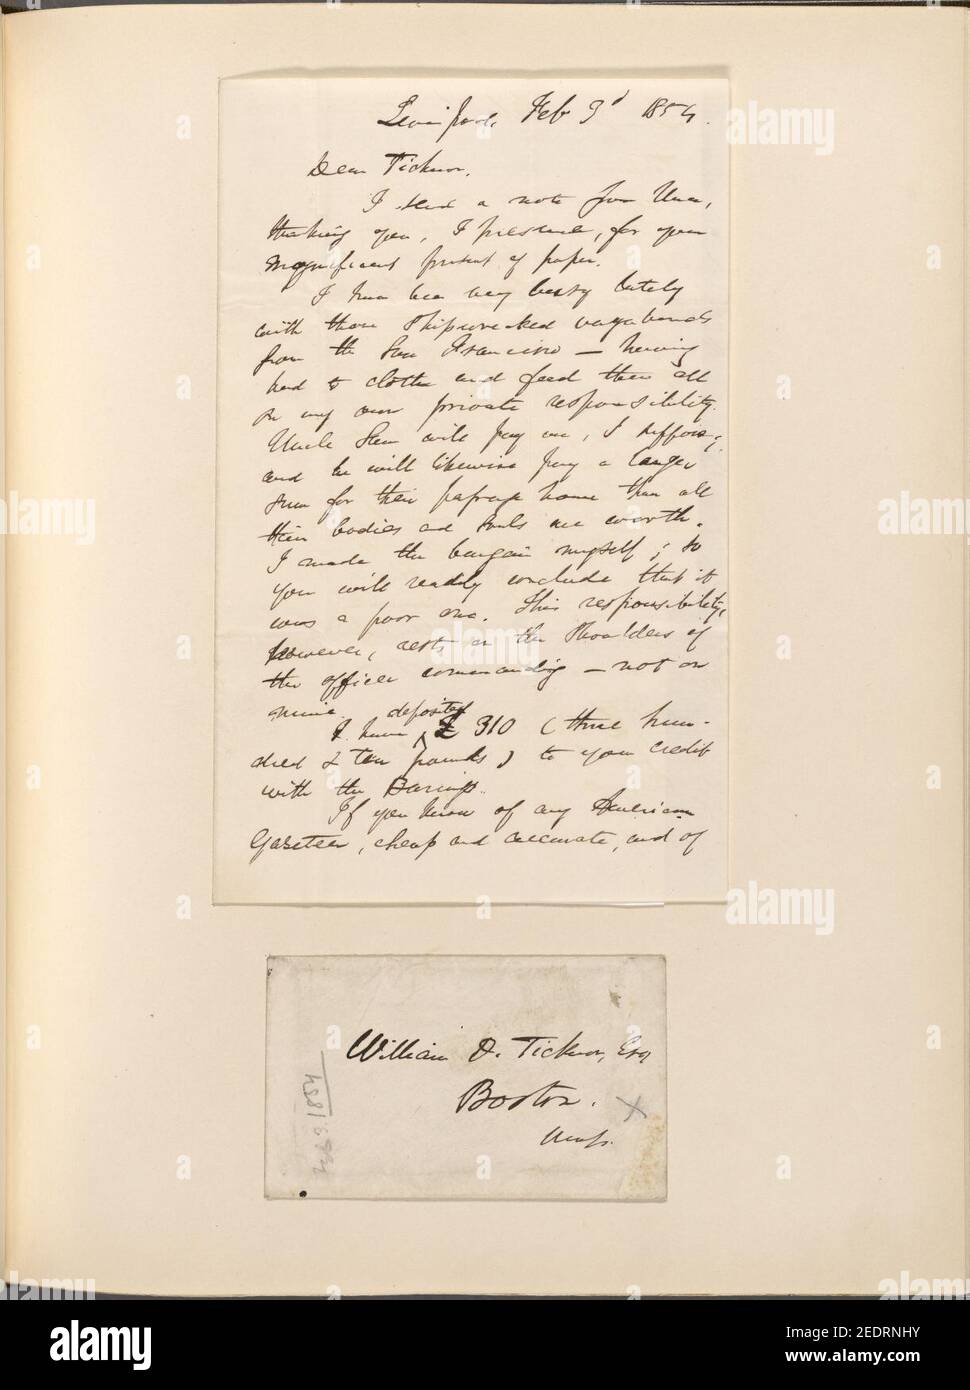 Liverpool, Feb 3d 1854.
Dear Ticknor,
I send a note from Una,
thanking you, I presume, for your
magnificent present of paper.
I have been very busy lately
with those shipwrecked vagabonds
from the San Francisco — having
had to clothe and feed them all
on my own private responsibility.
Uncle Sam will pay me, I suppose;
and he will likewise pay a larger
sum for their passage home than all
their bodies and souls are worth.
I made the bargain myself; so
you will readily conclude that it
was a poor one. This responsibility,
however, rests on the shoulders of
the officer commanding — not on
mine.
I have deposited £310 (three hun-
dred & ten pounds) to your credit
with the Barings.
If you know of any American
Gazeteer, cheap and accurate, and of
William D. Ticknor, Esq
Boston.
Mass.
Feb 3 1854
X
alamy
www.alamy.com
Image ID: 2EDRNHY